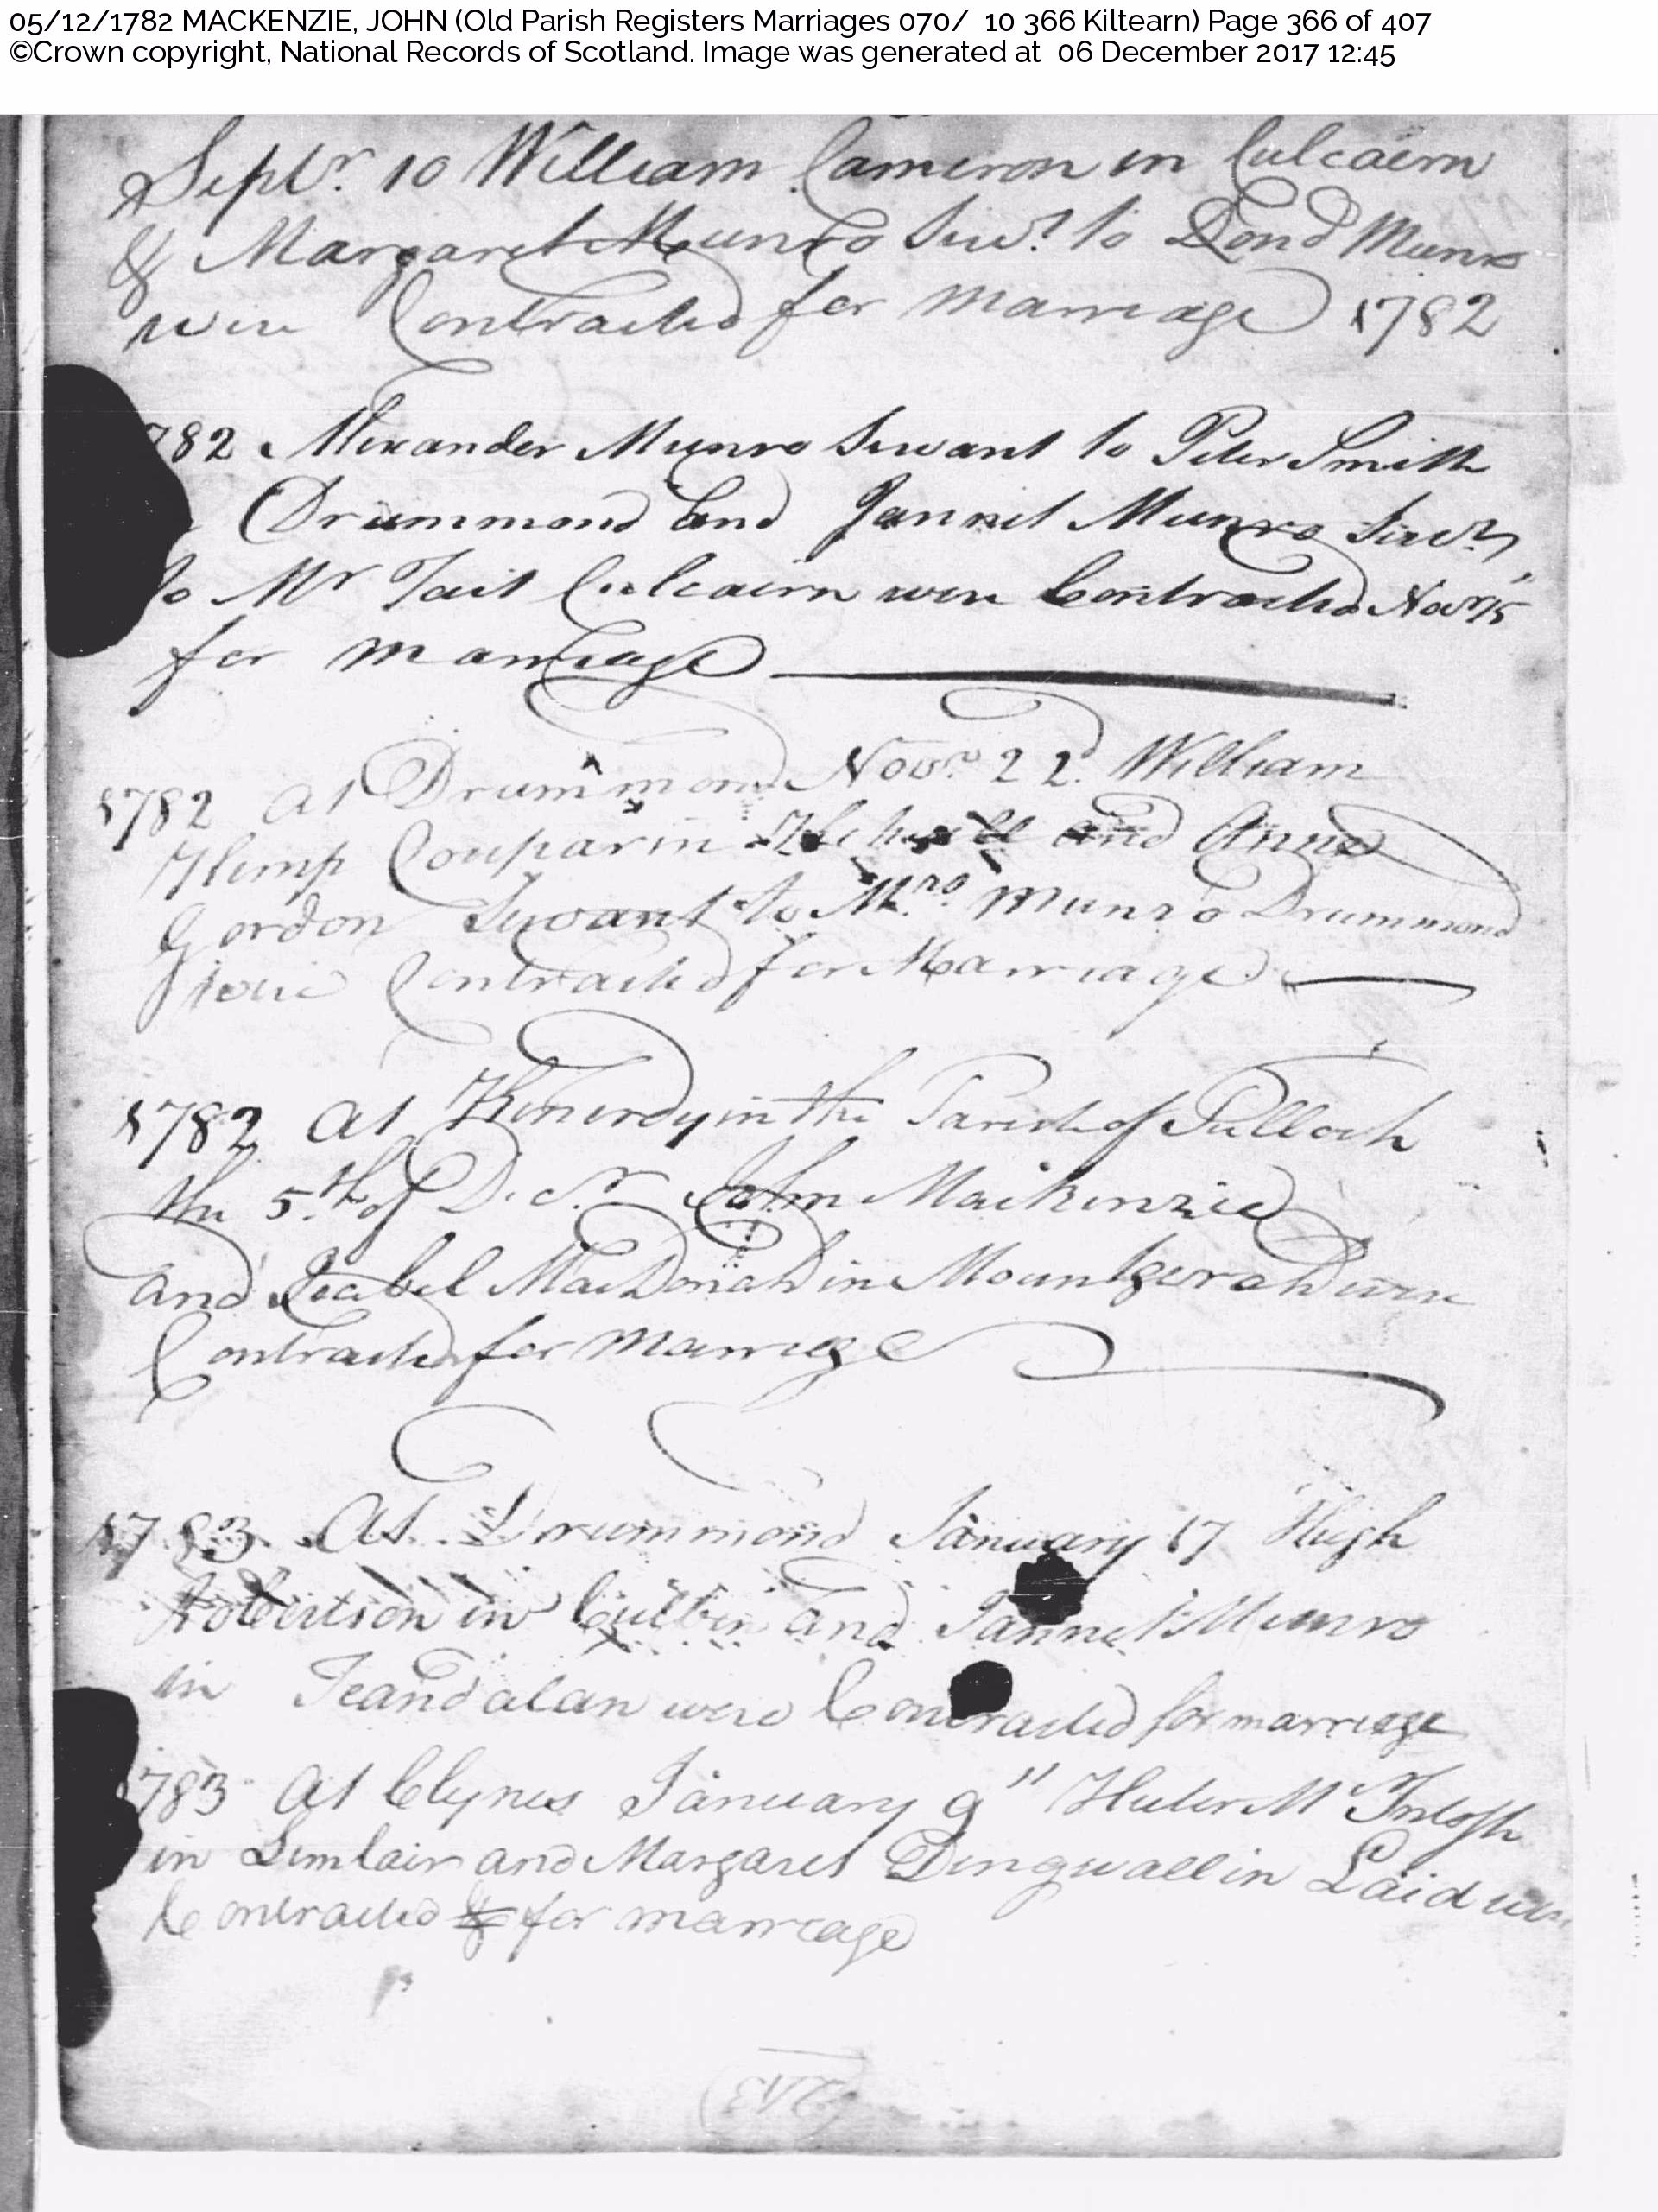 05/12/1782 MACKENZIE, JOHN (Old Parish Registers Marriages 070/ 10 366 Kiltearn) Page 366 of 407
©Crown copyright, National Records of Scotland. Image was generated at 06 December 2017 12:45
Septr. 10 William Cameron in Culcairn
& Margaret Munro Servt to Dond Munro
were Contracted for marriage 1782
782 Alexander Munro Servant to Peter Smith
Drummond and Jannet Munro Servt
to Mr Tait Culcairn were Contracted Novr 15
for marriage
1782 At Drummond Novr 22d William
Hemp Coupar in and Anne
Gordon Servant to Mrs Munro Drummond
were Contracted for Marriage
1782 At Kinerdy in the Parish of Fulloch
the 5th of Decr John Mackenzie
and Isabel MacDonald in Mountgerald were
Contracted for marriage
1783 At Drummond January 17 Hugh
Robertson in Culbin and Jannet Munro
in Teandalan were Contracted for marriage
783 At Clynes January 9" McIntosh
in Limlair and Margaret Dingwall in Laid were
Contracted & for marriage